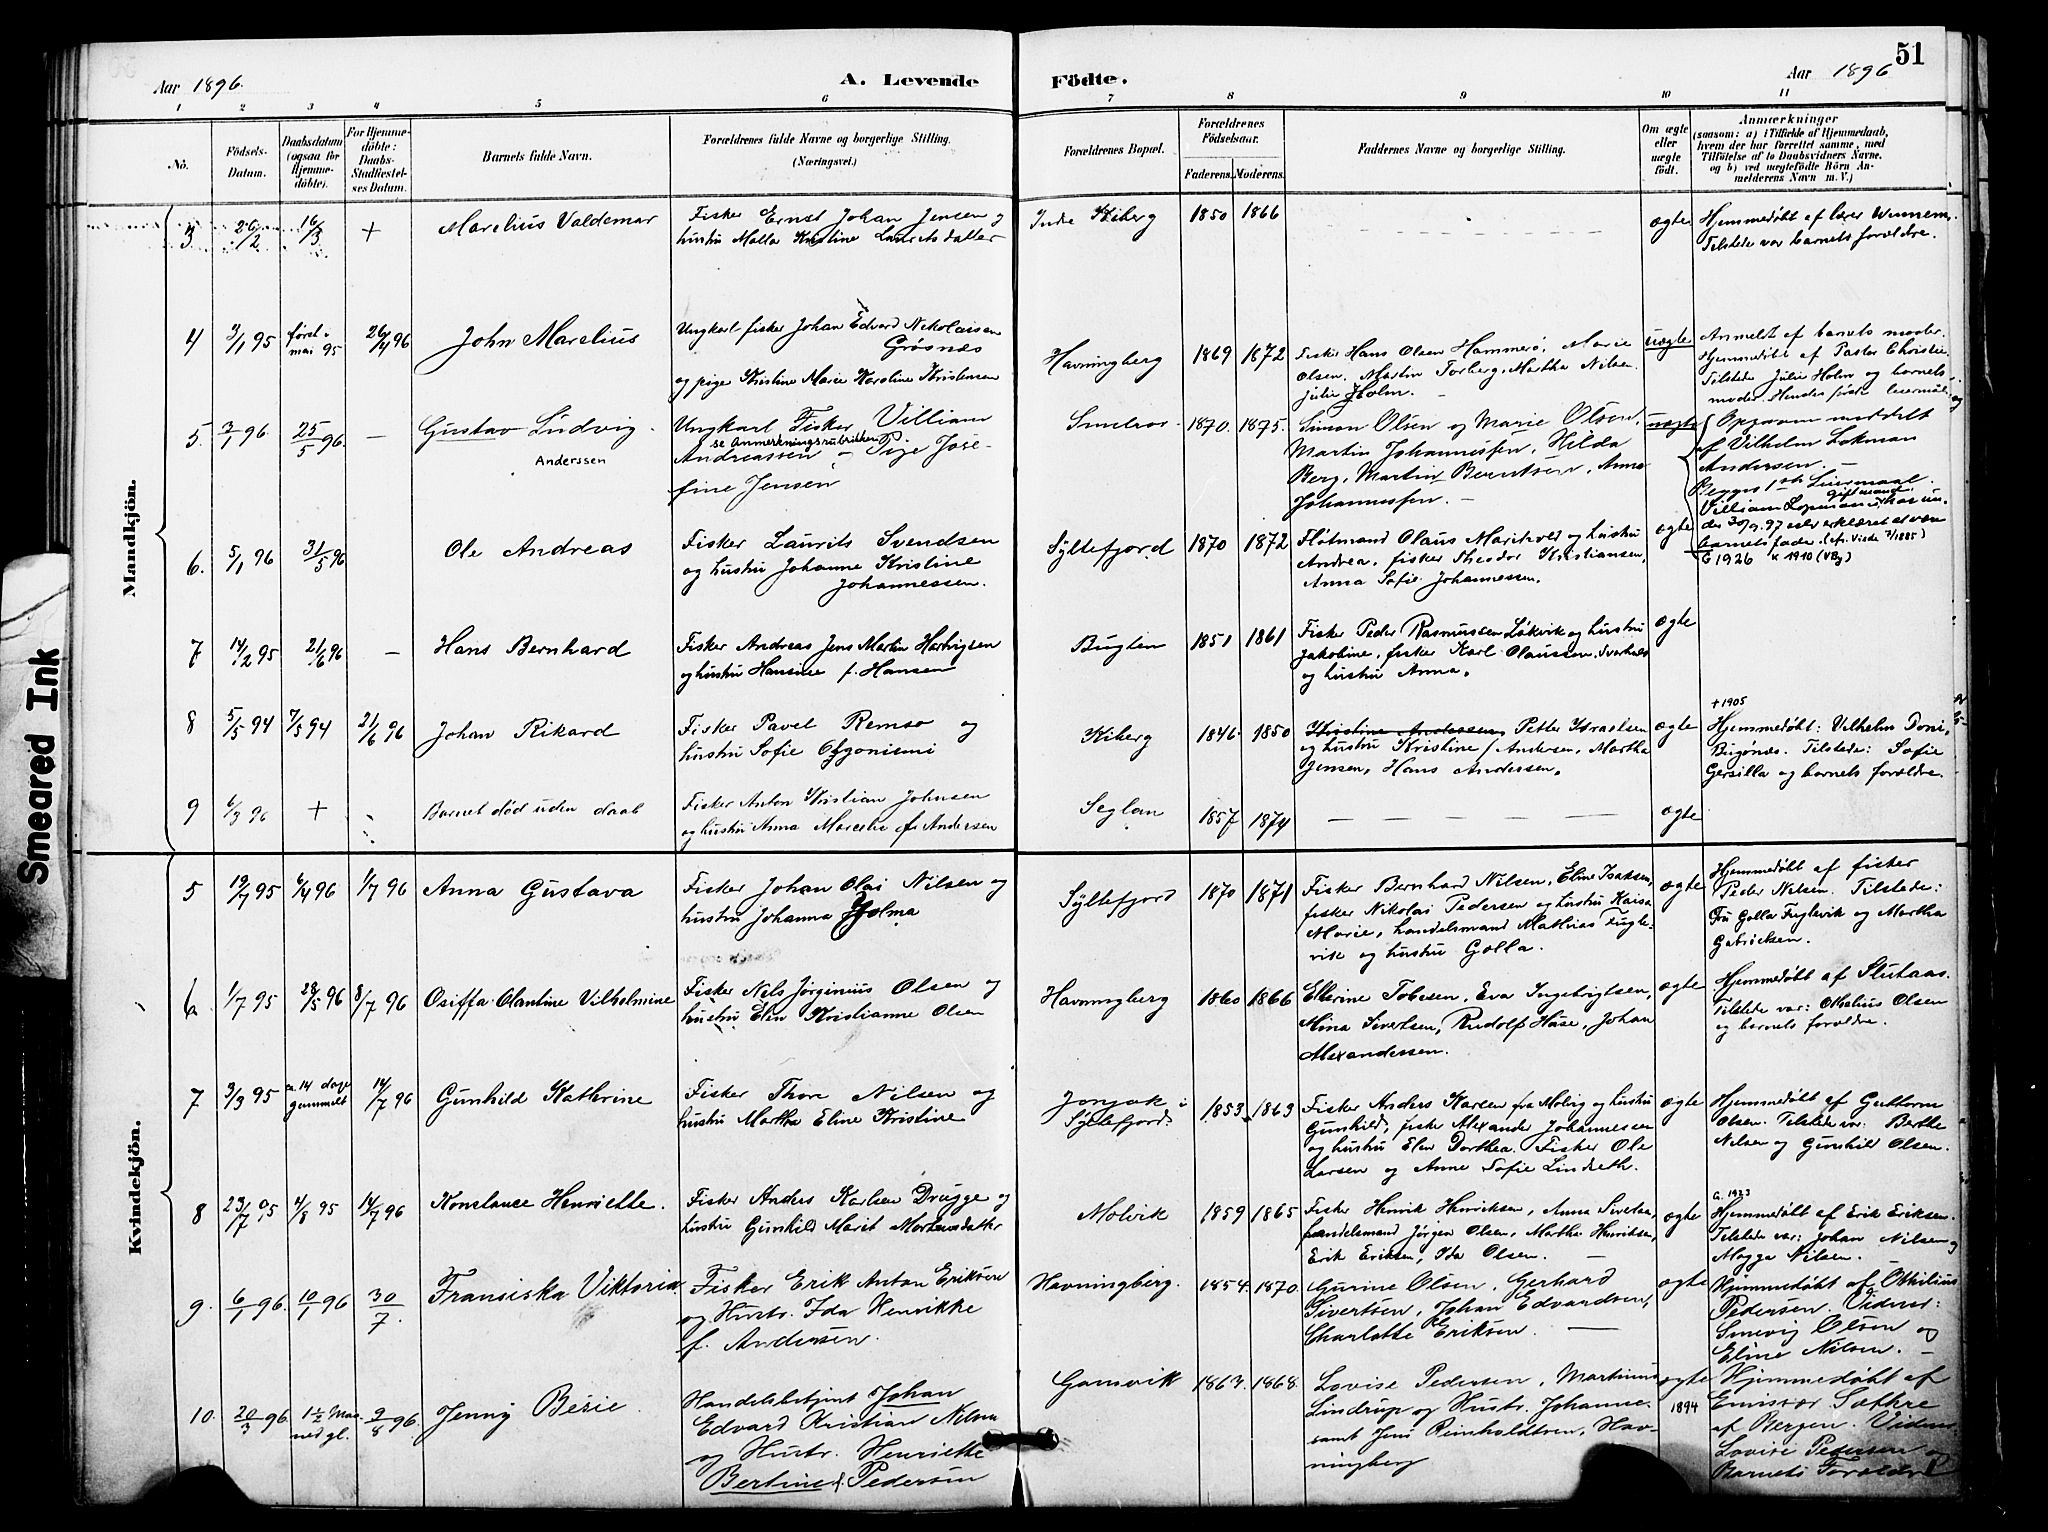 51
Aar 1896.
A. Levende
Födte.
Aar 1896
1 2 3 4 5 6 7 8 9 10 11
No.
Födsels-
Datum.
Daabsdatum
(ogsaa for
Hjemme-
döbte).
For Hjemme-
döbte:
Daabs-
Stadfæstel-
ses Datum.
Barnets fulde Navn.
Forældrenes fulde Navne og borgerlige Stilling.
(Næringsvei.)
Forældrenes Bopæl.
Forældrenes
Födselsaar.
Faderens. Moderens.
Faddernes Navne og borgerlige Stilling.
Om ægte
eller
uægte
födt.
Anmærkninger
(saasom: a) i Tilfælde af Hjemmedaab,
hvem der har forrettet samme, med
Tilföielse af to Daabsvidners Navne,
og b) ved uægtefödte Börn An-
melderens Navn m. V.)
Mandkjön.
3 26/2 16/3 + Marelius Valdemar
Fisker Ernst Johan Jensen og
hustru Malla Kristine Lauritsdatter
Indre Kiberg 1850 1866
ægte
Hjemmedøbt af lærer
Tilstede var barnets forældre.
4 3/1 95 først i
mai 95 26/4 96 John Marelius
Ungkarl fisker Johan Edvard Nikolaisen
Grøsnes
og pige Kristine Marie Karoline Kristensen
Havningberg 1869 1872
Fisker Hans Olsen Hammerø, Marie
Olsen, Martin Torberg, Martha Nilsen
Julie Holm.
uægte
Anmeldt af barnets moder.
Hjemmedøbt af Pastor Christie.
Tilstede Julie Holm og barnets
moder. Hendes første leiermål.
5. 3/1 96. 25/5 96. — Gustav Ludvig
Anderssen
Ungkarl Fisker Villiam
se Anmerkningsrubrikken
Andreassen – Pige Jose-
fine Jensen
Smelror 1870. 1875.
Simon Olsen og Marie Olsen,
Martin Johannesen, Hilda
Berg, Martin Berntsen, Anna
Johannesen. —
uægte
Opgaven meddelt
af Vilhelm Lokman
Andersen. —
Begges 1ste Leiermaal.
Villiam Lopman
der 30/9. 97 selv erklæret at være
barnets fader.
6 1926 k 1910 (VBg)
6. 5/1 96 31/5 96 Ole Andreas
Fisker Laurits Svendsen
og hustru Johanne Kristine
Johannessen.
Syltefjord 1870 1872
Fløtmand Olaus Marihold og hustru
Andrea, fisker Theodor Kristiansen,
Anna Sofie Johannessen.
ægte
7 14/2 95 21/6 96 — Hans Bernhard
Fisker Andreas Jens Martin Hartvigsen
og hustru Hansine f. Hansen
Bugten 1851 1861
Fisker Peder Rasmussen Løkvik og hustru
Jakobine, fisker Karl Olaussen, Svartnes
og hustru Anna.
ægte
8 5/5 94 7/5 94 21/6 96 Johan Rikard
Fisker Pavel Remso og
hustru Sofie Ofgoniemi
Kiberg 1846. 1850
Kristine Andersen, Petter Israelsen
og hustru Kristine f. Andersen, Martha
Jensen, Hans Andersen.
ægte
+ 1905
Hjemmedøbt: Vilhelm Doni,
Bugønæs. Tilstede: Sofie
Gersilla og barnets forældre.
9 6/3 96 + - Barnet død uden daab
Fisker Anton Kristian Johnsen
og hustru Anna Marcelie f. Andersen
Seglan 1857 1874
— — — — —
ægte
Kvindekjön.
5 19/7 95 6/4 96 1/7 96 Anna Gustava
Fisker Johan Olai Nilsen og
hustru Johanna Holma
Syltefjord 1870 1871
Fisker Bernhard Nilsen, Eline Isaksen,
fisker Nikolai Pedersen og hustru Kaisa
Marie, handelsmand Mathias Fugle-
vik og hustru Golla.
ægte
Hjemmedøbt af fisker
Peder Nilsen. Tilstede:
Fru Golla Fuglevik og Martha
Gabrielsen.
6 1/7 95 28/5 96 8/7 96 Osiffa Olantine Vilhelmine
Fisker Nels Jørginius Olsen og
hustru Elen Kristianne Olsen
Havningberg 1860 1866
Ellerine Tobesen, Eva Ingebrigtsen,
Mina Sivertsen, Rudolf Hase, Johan
Alexandersen.
ægte
Hjemmedøbt af Slutaas.
Tilstede var: Othelius Olsen
og barnets forældre.
7 3/3 95 ca. 14 dage
gammelt 14/7 96 Gunhild Kathrine
Fisker Thor Nilsen og
hustru Martha Eline Kristine
Jonjok i
Syltefjord 1853 1863
Fisker Anders Karlsen fra Molvig og hustru
Gunhild, fisker Alexander Johannessen
og hustru Elen Dorthea. Fisker Ole
Larsen og Anne Sofie Lindseth.
ægte
Hjemmedøbt af Guttorm
Olsen. Tilstede var: Berthe
Nilsen og Gunhild Olsen.
8 23/7 95 4/8 95 14/7 96 Konstance Henriette.
Fisker Anders Karlsen Drugge og
hustru Gunhild Marit Mortensdatter
Molvik 1859 1865
Fisker Henrik Henriksen, Anna Sivertsen,
handelsmand Jørgen Olsen, Martha Henriksen,
Erik Eriksen, Ida Olsen. —
ægte
G. 1923
Hjemmedøbt af Erik Eriksen.
Tilstede var: Johan Nilsen og
Magga Nilsen. —
9. 6/1 96. 10/1 96 30/7. Fransiska Viktoria.
Fisker Erik Anton Eriksen
og Hustr. Ida Henrikke
f. Andersen.
Havningberg. 1854. 1870.
Gurine Olsen, Gerhard
Sivertsen, Johan Edvardsen,
Charlotte Eriksen. —
ægte
Hjemmedøbt af Othilius
Pedersen. Vidner:
Smevig Olsen og
Eline Nilsen. —
10. 20/3 96. 1½ Maa-
ned gl. 9/8 96. Jenny Besie.
Handelsbetjent Johan
Edvard Kristian Nilsen
og Hustr. Henriette
Bertine f. Pedersen
Gamvik 1863. 1868.
Lovise Pedersen, Martinus
Lindrup og Hustr. Johanne.
samt Jens Reinholdtsen, Hav-
ningberg
ægte
1894
Hjemmedøbt af
Emissær Sæthre
af Bergen. Vidner
Lovise Pedersen og
Barnets Forældre
Smeared Ink